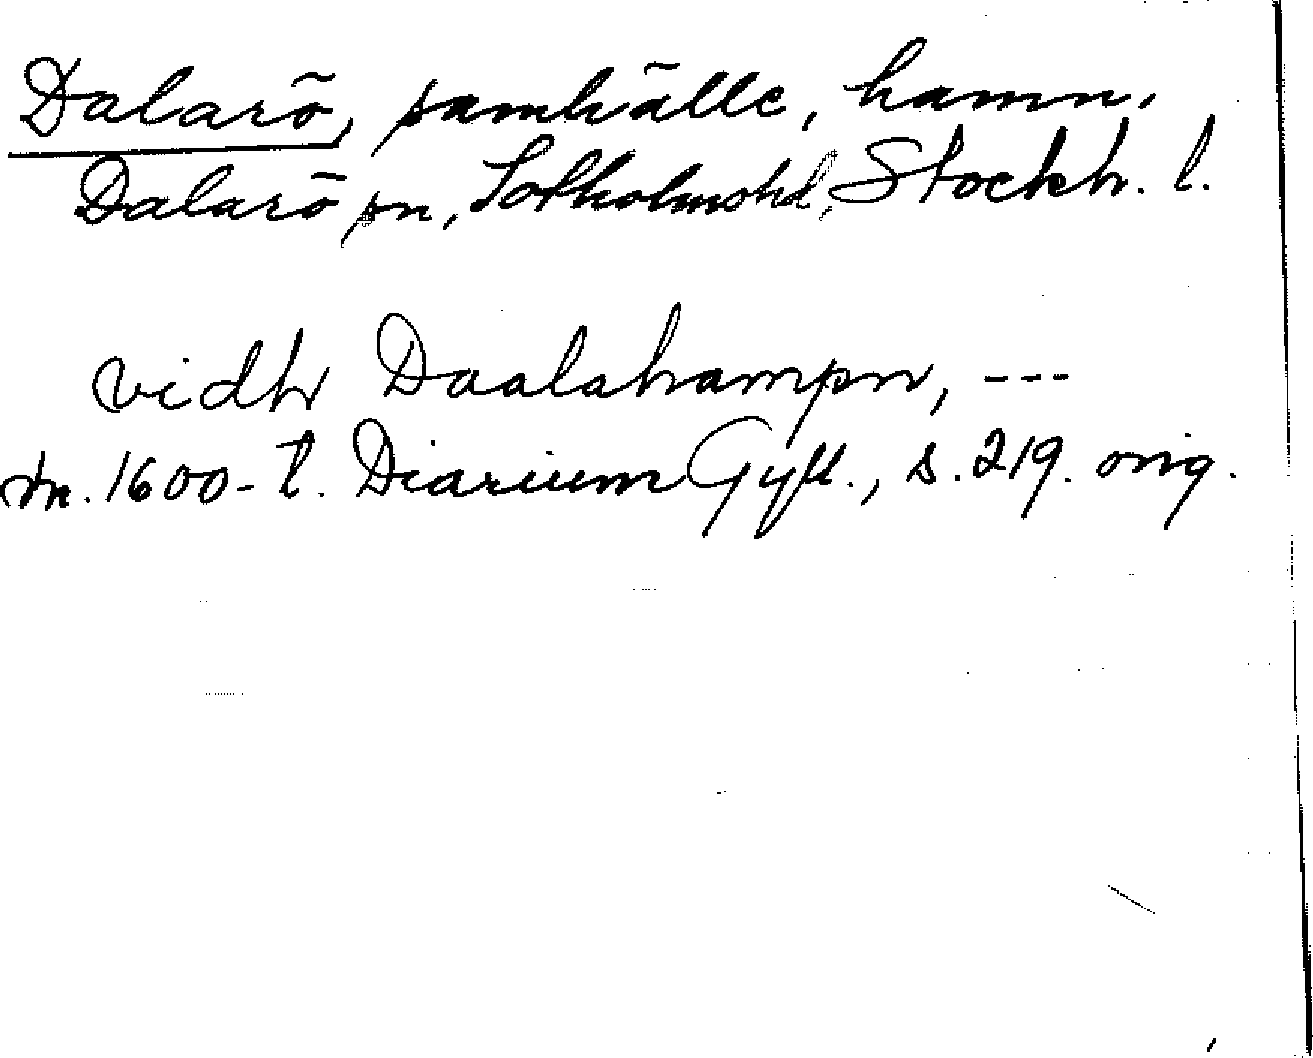 Dalarö, samhälle, hamn,
Dalarö sn, Sotholmshd, Stockh. l.
vidh Daalahampn, ---
m. 1600-t. Diarium Gyll., s. 219. orig.